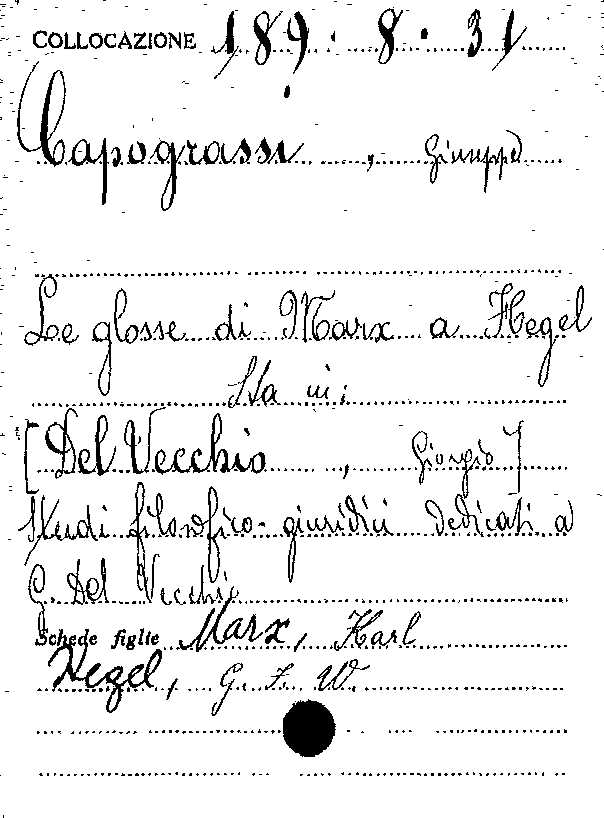 COLLOCAZIONE 189.8.31
Capograssi, Giuseppe
Le glosse di Marx a Hegel
Sta in:
[Del Vecchio, Giorgio]
Studi filosofico-giuridici dedicati a
G. Del Vecchio
Schede figlie Marx, Karl
Hegel, G. F. W.